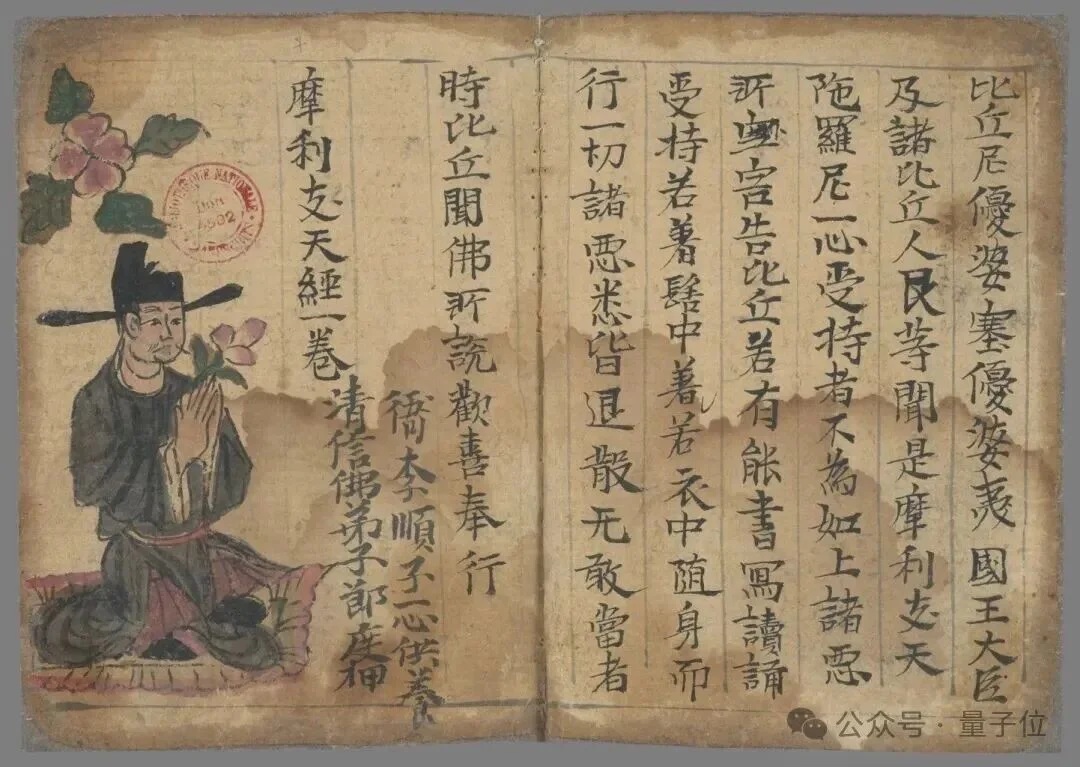 比丘尼優婆塞優婆夷國王大臣
及諸比丘人民等聞是摩利支天
陁羅尼一心受持者不為如上諸惡
所害告比丘若有能書寫讀誦
受持若著髻中著若衣中随身而
行一切諸惡悉皆退散无敢當者
時比丘聞佛所說歡喜奉行
摩利支天經一卷
清信佛弟子節度押
衙李順子一心供養
BIBLIOTHEQUE NATIONALE
Don
4502
公众号 · 量子位